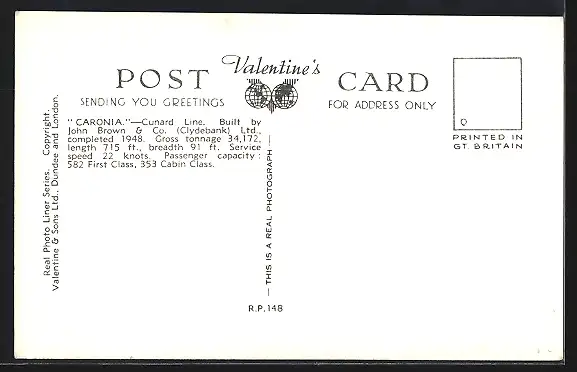 Valentine's
POST CARD
SENDING YOU GREETINGS
FOR ADDRESS ONLY
"CARONIA."—Cunard Line. Built by
John Brown & Co. (Clydebank) Ltd.,
completed 1948. Gross tonnage 34,172,
length 715 ft., breadth 91 ft. Service
speed 22 knots. Passenger capacity :
582 First Class, 353 Cabin Class.
PRINTED IN
GT. BRITAIN
Real Photo Liner Series. Copyright.
Valentine & Sons Ltd., Dundee and London.
— THIS IS A REAL PHOTOGRAPH —
R.P.148